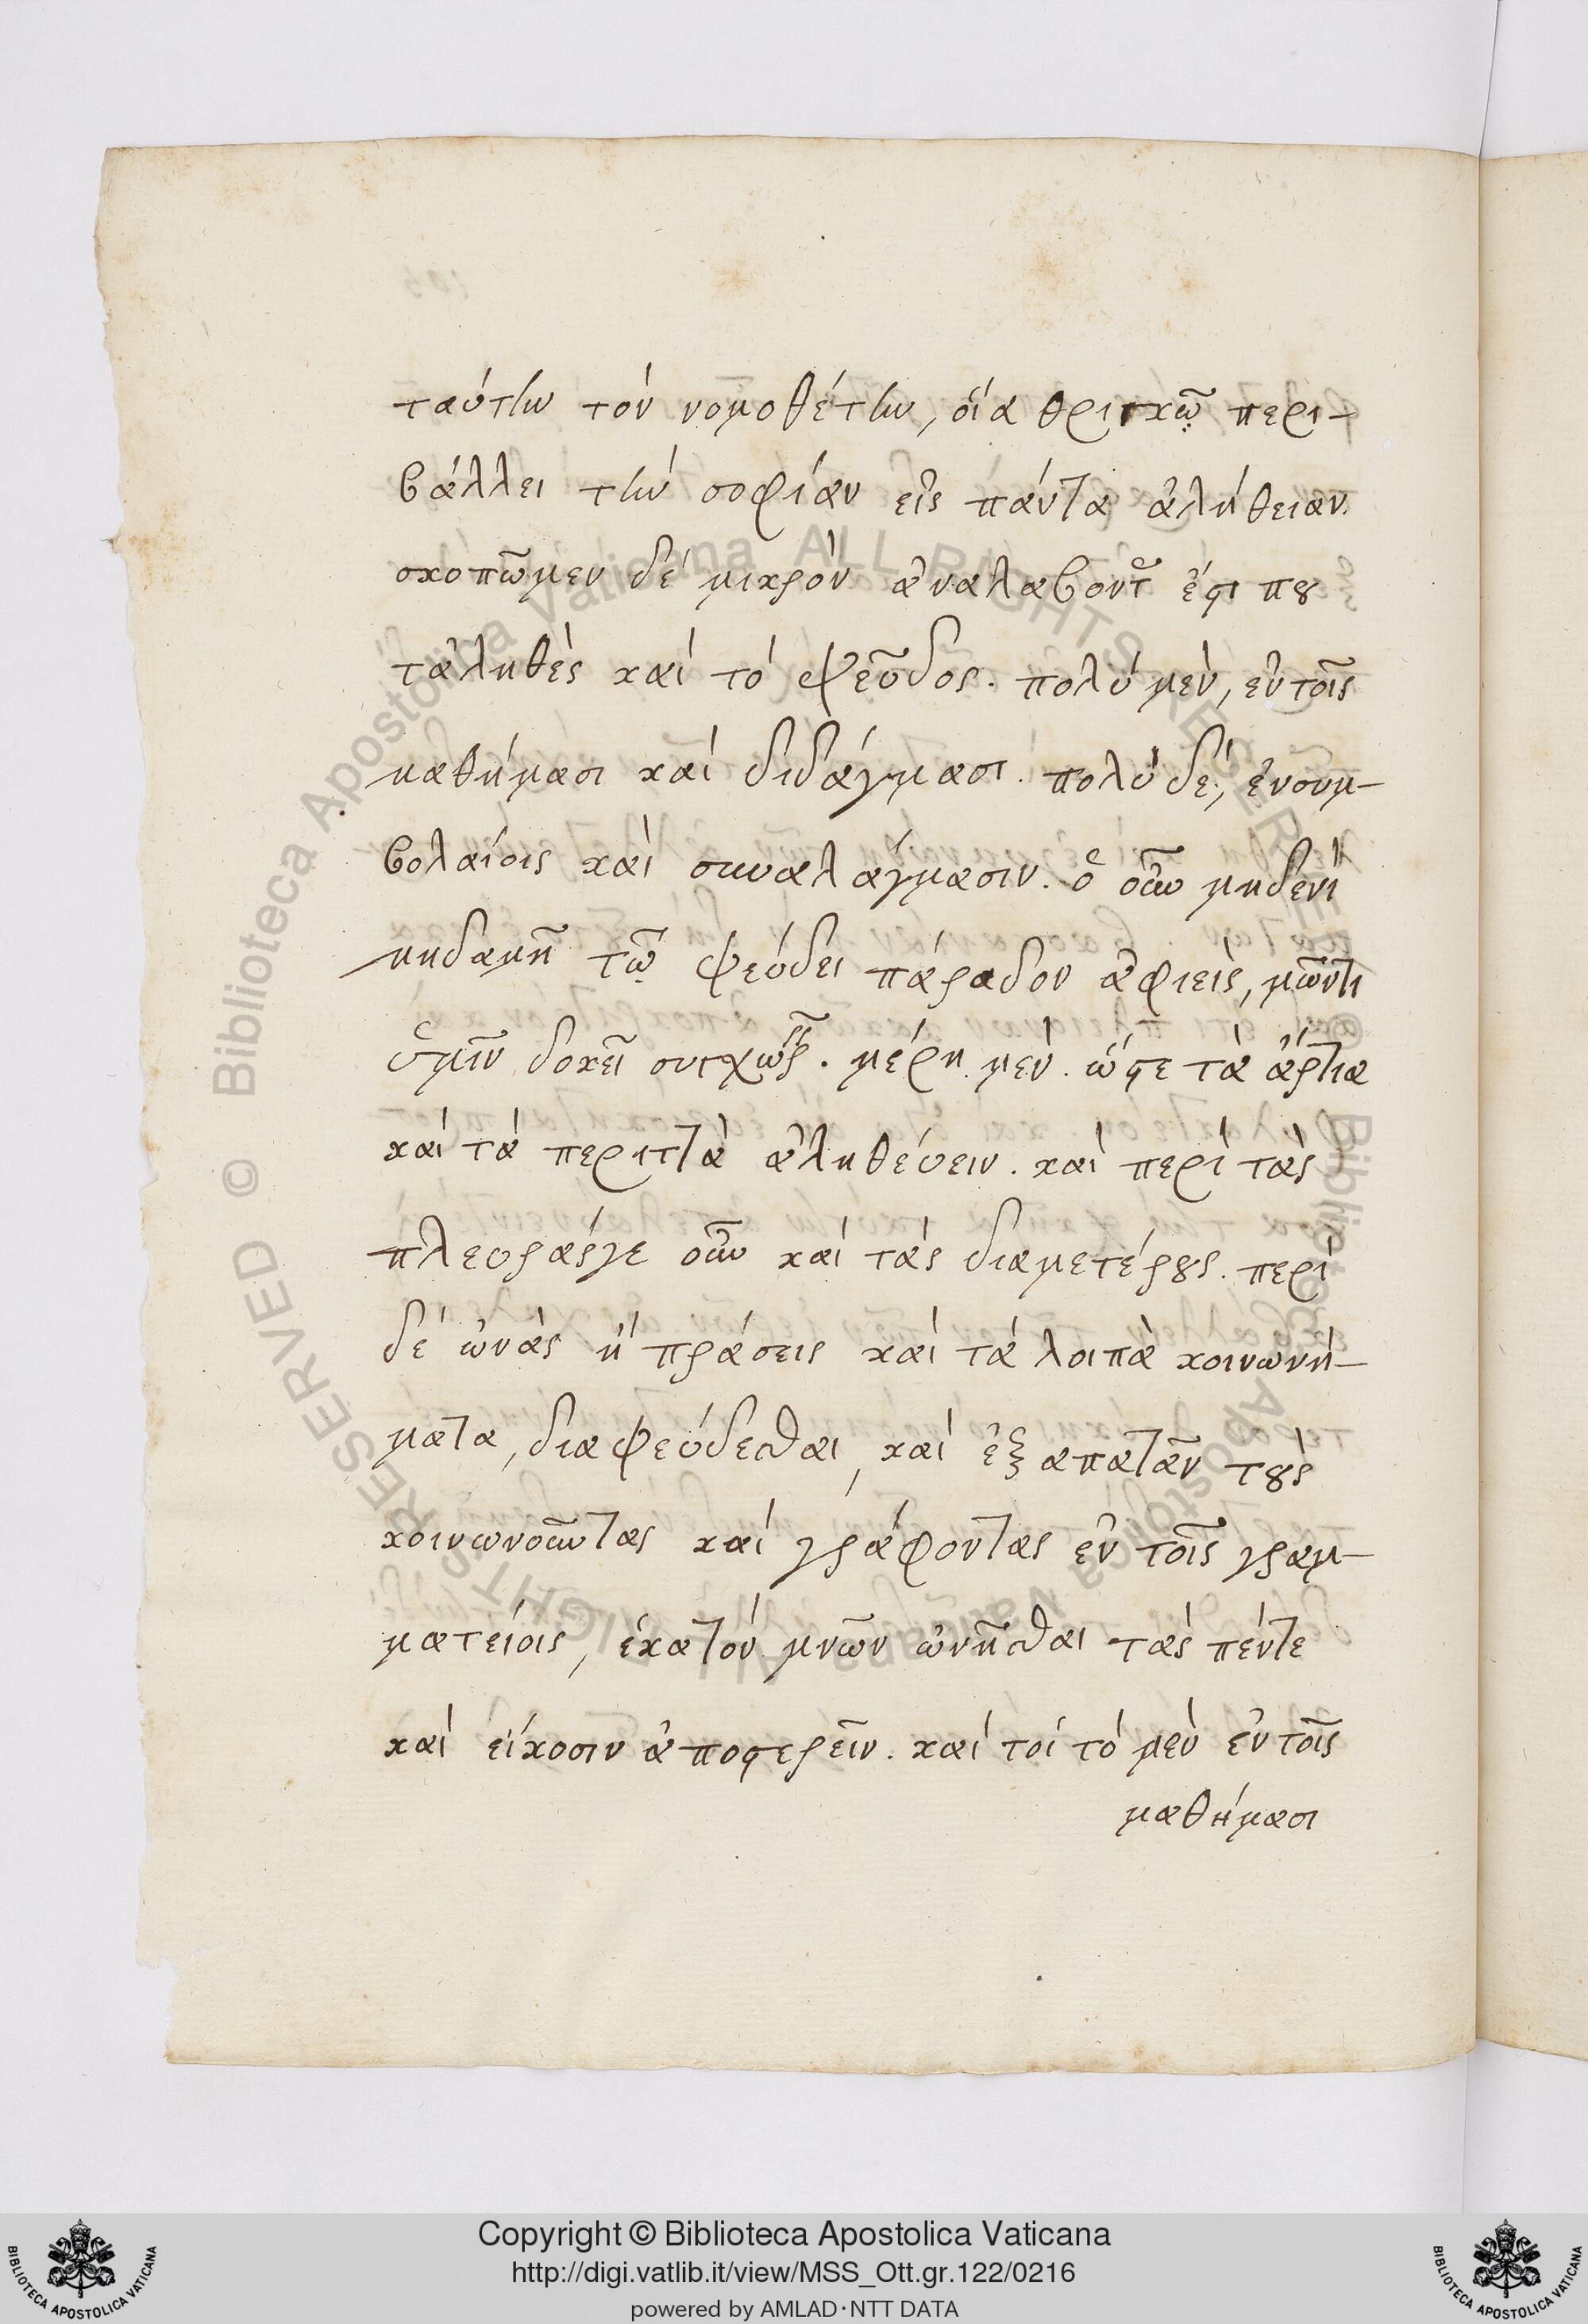 ταύτην τὸν νομοθέτην, οἷα θριγκῷ περι-
βάλλει τὴν σοφίαν εἰς πάντα ἀλήθειαν.
σκοπῶμεν δὲ μικρὸν ἀναλαβόντες ἔστι που
τἀληθὲς καὶ τὸ ψεῦδος. πολὺ μὲν, ἐν τοῖς
μαθήμασι καὶ διδάγμασι. πολὺ δὲ, ἐν συμ-
βολαίοις καὶ συναλάγμασιν. ὃ οὖν μηδενὶ
μηδαμῆ τῷ ψεύδει πάροδον ἀφιεὶς, μῶντι
ὑμῖν δοκεῖ συγχωρ. μέρη μὲν. ὥστε τὰ ἄρτια
καὶ τὰ περιττὰ ἀληθεύειν. καὶ περὶ τὰς
πλευράς γε οὖν καὶ τὰς διαμετέρους. περὶ
δὲ ὠνὰς ἢ πράσεις καὶ τὰ λοιπὰ κοινωνή-
ματα, διαψεύδεσθαι, καὶ ἐξαπατᾶν τοὺς
κοινωνοῦντας καὶ γράφοντας ἐν τοῖς γραμ-
ματείοις, ἑκατὸν μνῶν ὠνῆσθαι τὰς πέντε
καὶ εἴκοσιν ἀποστερεῖν. καί τοι τὸ μὲν ἐν τοῖς
μαθήμασι
Copyright © Biblioteca Apostolica Vaticana
http://digi.vatlib.it/view/MSS_Ott.gr.122/0216
powered by AMLAD·NTT DATA
BIBLIOTECA APOSTOLICA VATICANA
BIBLIOTECA APOSTOLICA VATICANA